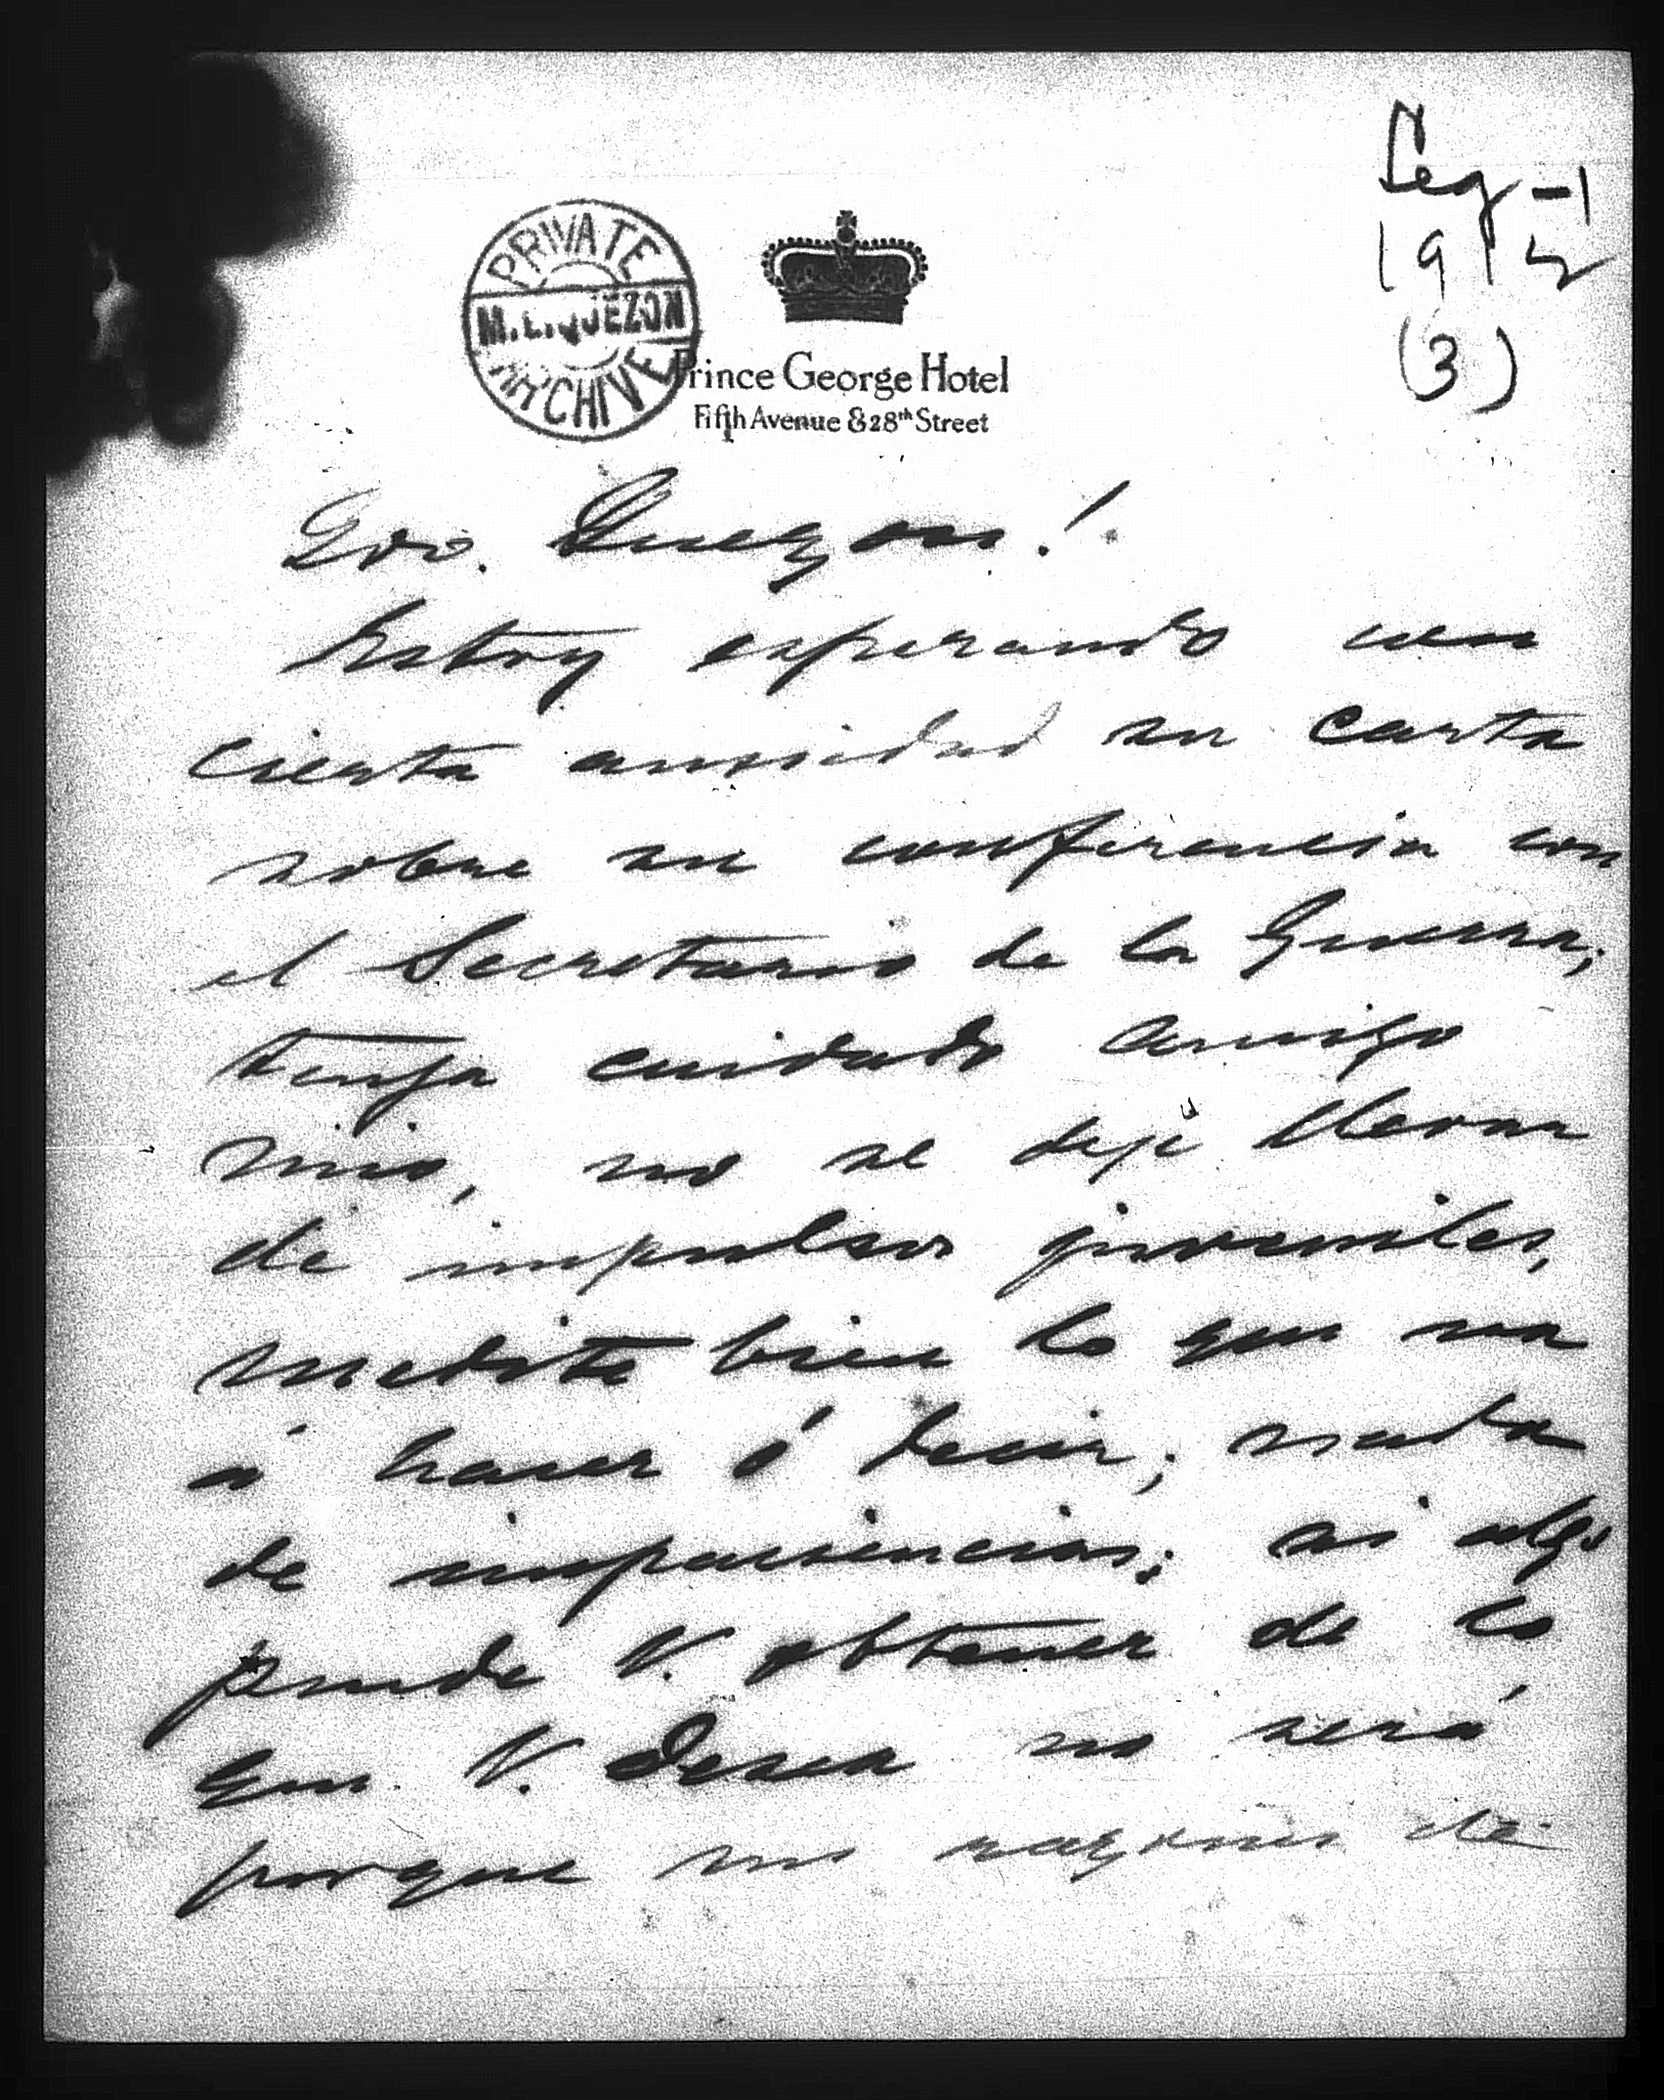 Leg-1
1912
(3)
PRIVATE
M.L.QUEZON
ARCHIVE
Prince George Hotel
Fifth Avenue & 28th Street
Sr. Quezon!
Estoy esperando con
cierta ansiedad su carta
sobre su conferencia con
el Secretario de la Guerra;
tenga cuidado amigo
mio, no se deje llevar
de impulsos juveniles,
medite bien lo que va
á hacer ó decir; nada
de impaciencias; si algo
puede V. obtener de lo
que V. desea no será
porque sus razones de-